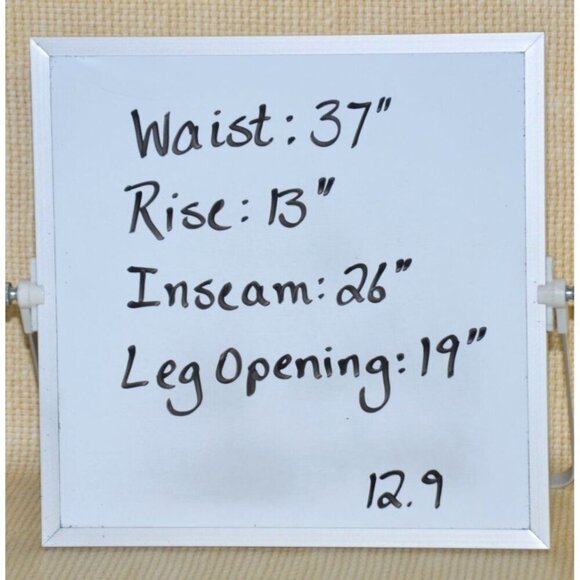 Waist: 37"
Rise: 13"
Inseam: 26"
Leg Opening: 19"
12.9